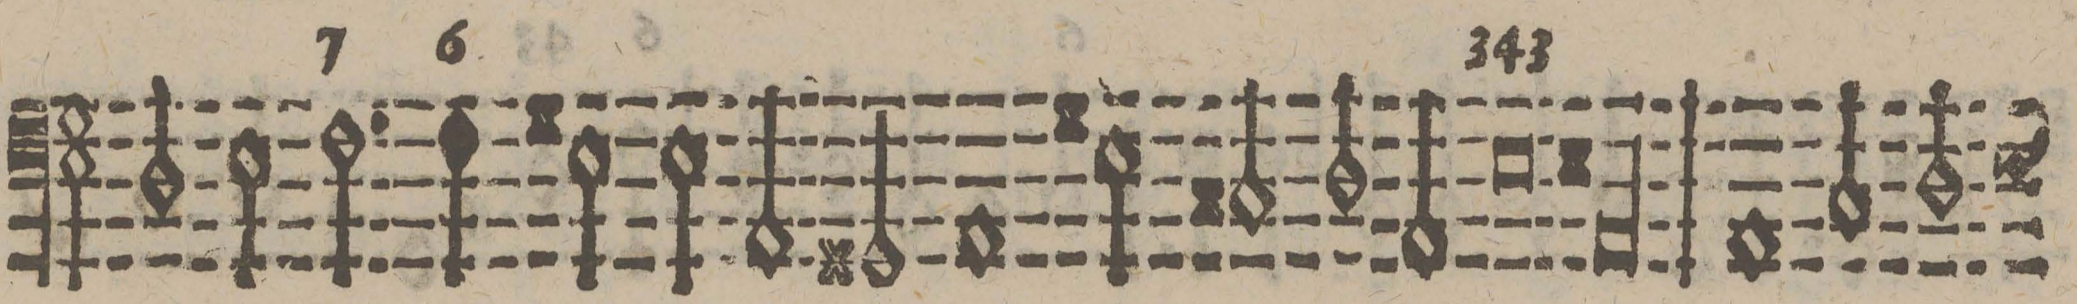 7 6 343